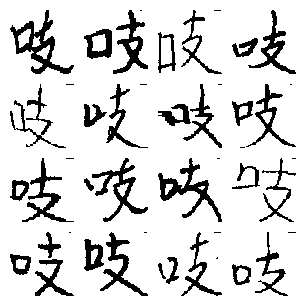 吱吱吱吱
吱吱吱吱
吱吱吱吱
吱吱吱吱